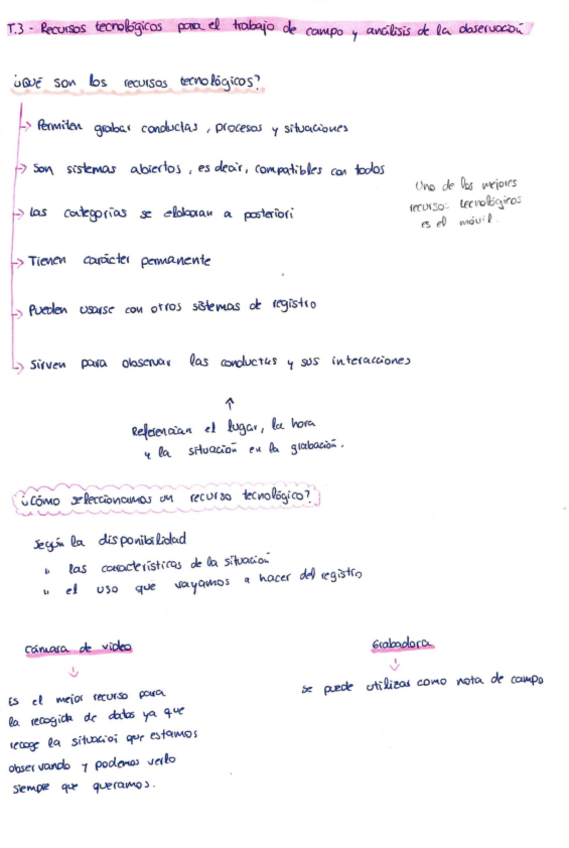 T.3 - Recursos tecnológicos para el trabajo de campo y análisis de la observación
¿Qué son los recursos tecnológicos?
Permiten grabar conductas, procesos y situaciones
Son sistemas abiertos, es decir, compatibles con todos
Uno de los mejores
recursos tecnológicos
es el móvil.
Las categorías se elaboran a posteriori
Tienen carácter permanente
Pueden usarse con otros sistemas de registro
Sirven para observar las conductas y sus interacciones
Referencian el lugar, la hora
y la situación en la grabación.
¿Cómo seleccionamos un recurso tecnológico?
Según la disponibilidad
" las características de la situación
" el uso que vayamos a hacer del registro
Cámara de video
Es el mejor recurso para
la recogida de datos ya que
recoge la situación que estamos
observando y podemos verlo
siempre que queramos.
Grabadora
se puede utilizar como nota de campo